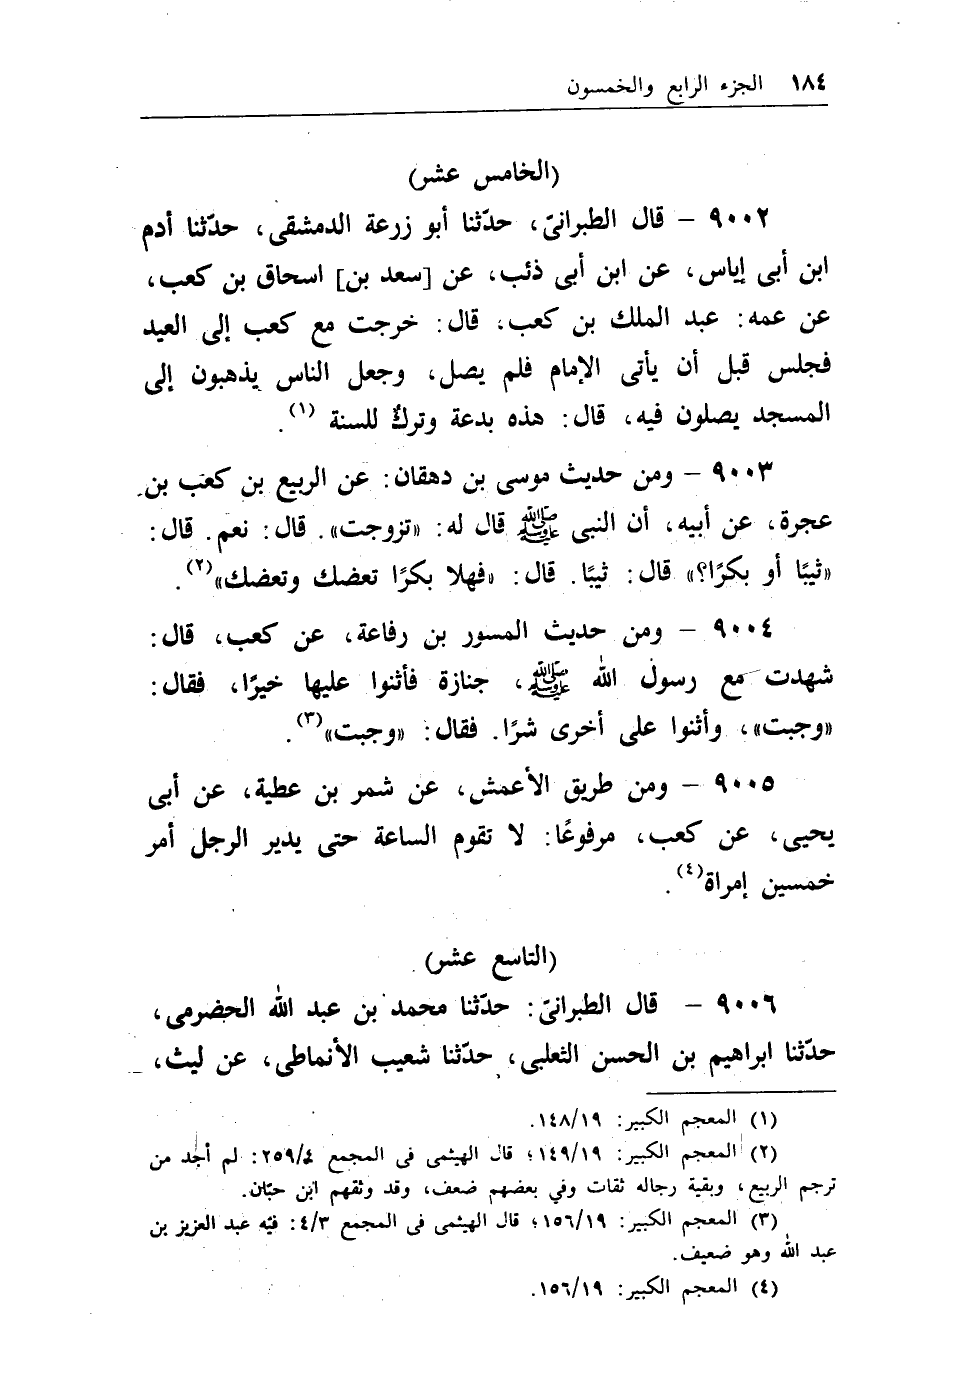 ١٨٤ الجزء الرابع والخمسون
(الخامس عشر)
٩٠٠٢ - قال الطبرانىّ، حدّثنا أبو زرعة الدمشقى، حدّثنا أدم
ابن أبى إياس، عن ابن أبى ذئب، عن [سعد بن] اسحاق بن كعب،
عن عمه: عبد الملك بن كعب، قال: خرجت مع كعب إلى العيد
فجلس قبل أن يأتى الإمام فلم يصل، وجعل الناس يذهبون إلى
المسجد يصلون فيه، قال: هذه بدعة وتركٌ للسنة (١).
٩٠٠٣ - ومن حديث موسى بن دهقان: عن الربيع بن كعب بن
عجرة، عن أبيه، أن النبى ﷺ قال له: «تزوجت». قال: نعم. قال:
«ثيبًا أو بكرًا؟» قال: ثيبًا. قال: «فهلا بكرًا تعضك وتعضك»(٢).
٩٠٠٤ - ومن حديث المسور بن رفاعة، عن كعب، قال:
شهدت مع رسول الله ﷺ، جنازة فأثنوا عليها خيرًا، فقال:
«وجبت»، وأثنوا على أخرى شرًا. فقال: «وجبت»(٣).
٩٠٠٥ - ومن طريق الأعمش، عن شمر بن عطية، عن أبى
يحيى، عن كعب، مرفوعًا: لا تقوم الساعة حتى يدير الرجل أمر
خمسين إمراة(٤).
(التاسع عشر)
٩٠٠٦ - قال الطبرانىّ: حدّثنا محمد بن عبد الله الحضرمى،
حدّثنا ابراهيم بن الحسن الثعلبى، حدّثنا شعيب الأنماطى، عن ليث،
(١) المعجم الكبير: ١٤٨/١٩.
(٢) المعجم الكبير: ١٤٩/١٩؛ قال الهيثمى فى المجمع ٢٥٩/٤: لم أجد من
ترجم الربيع، وبقية رجاله ثقات وفي بعضهم ضعف، وقد وثقهم ابن حبّان.
(٣) المعجم الكبير: ١٥٦/١٩؛ قال الهيثمى فى المجمع ٤/٣: فيه عبد العزيز بن
عبد الله وهو ضعيف.
(٤) المعجم الكبير: ١٥٦/١٩.